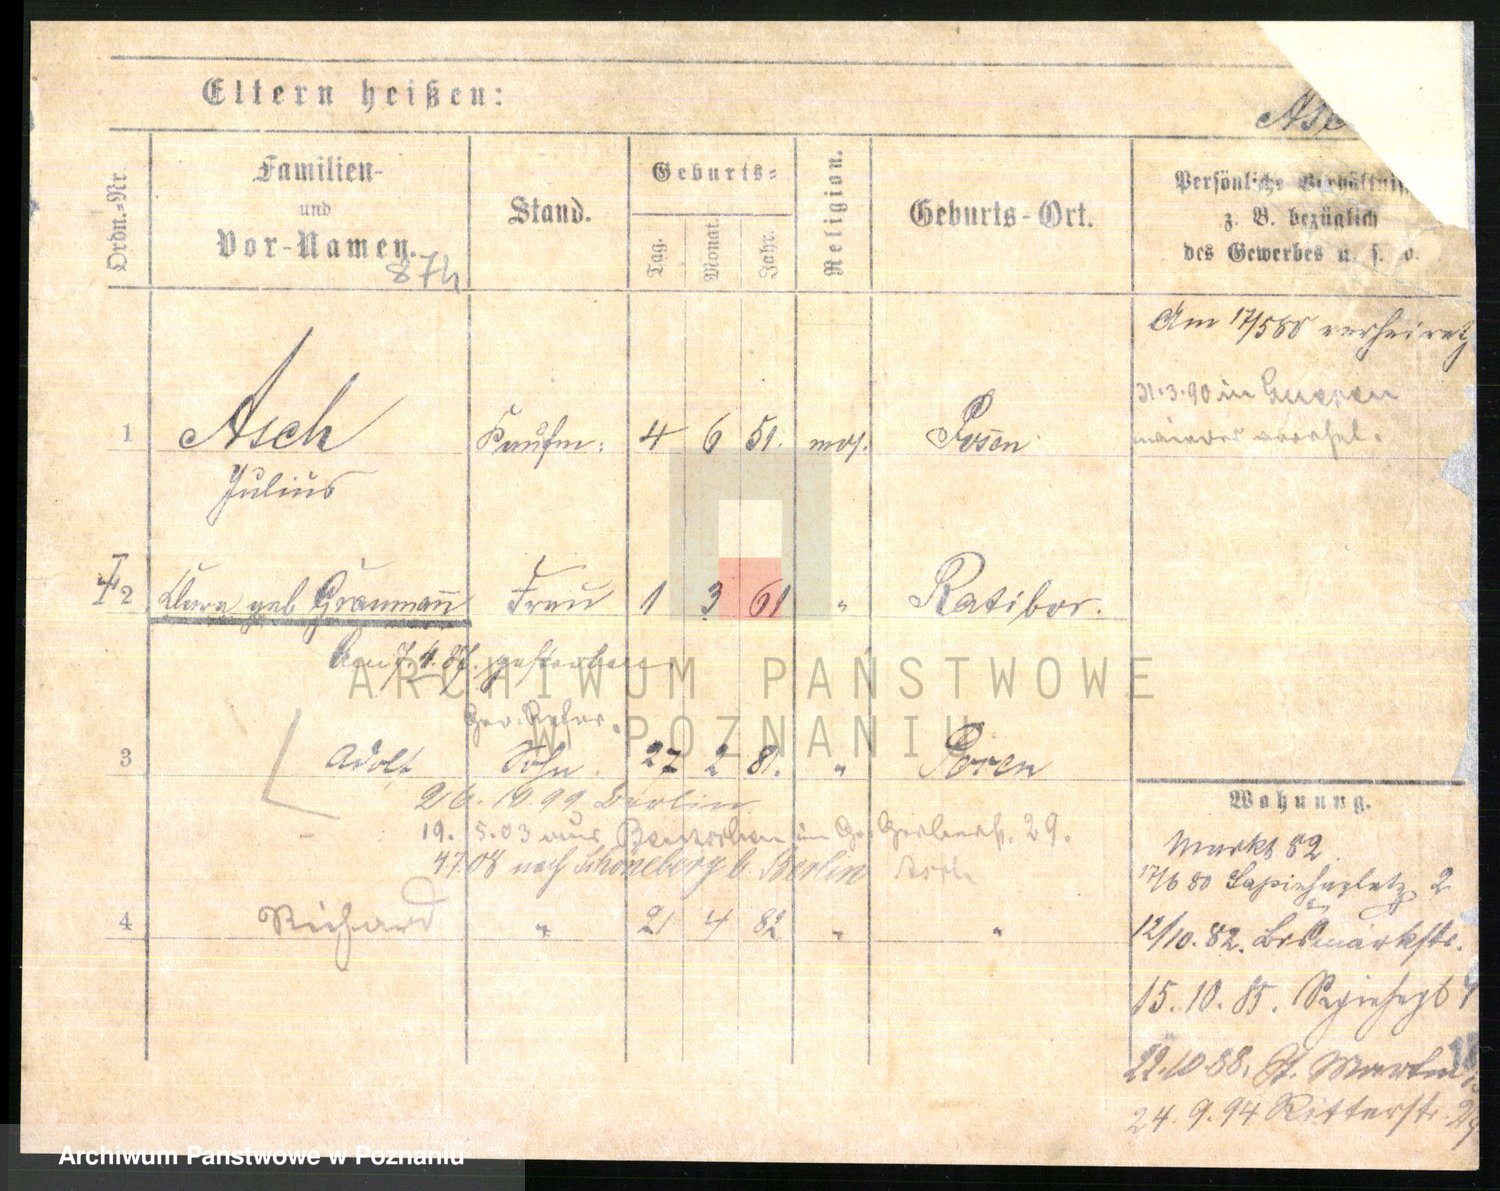 Eltern heißen:
Asc
Ordn.-Nr.
Familien-
und
Vor-Namen.
874
Stand.
Geburts-
Tag.
Monat.
Jahr.
Religion.
Geburts-Ort.
Persönliche Verhältnis
z. B. bezüglich
des Gewerbes u. s. w.
Am 17/5 80 verheirat
31.3.90 in
1 Asch Kaufm: 4 6 51. mos. Posen
Julius
2 Clara geb Graumann Frau 1 3 61 " Ratibor.
Am 7.4.87. gestorben
Ger. Refer.
3 Adolf Sohn 27 2 81. " Posen
26.10 99 Berlin
19. 5.03 aus in Gerberst. 29.
4 7 08 nach Schöneberg b. Berlin
4 Richard " 21 4 82 " "
Wohnung.
Markt 82
17/6 80 Sapiehaplatz 2
12/10. 82. Bismarkstr.
15. 10. 85.
22.10 88. St. Martin
24. 9. 94 Ritterstr.
ARCHIWUM PAŃSTWOWE
W POZNANIU
Archiwum Państwowe w Poznaniu